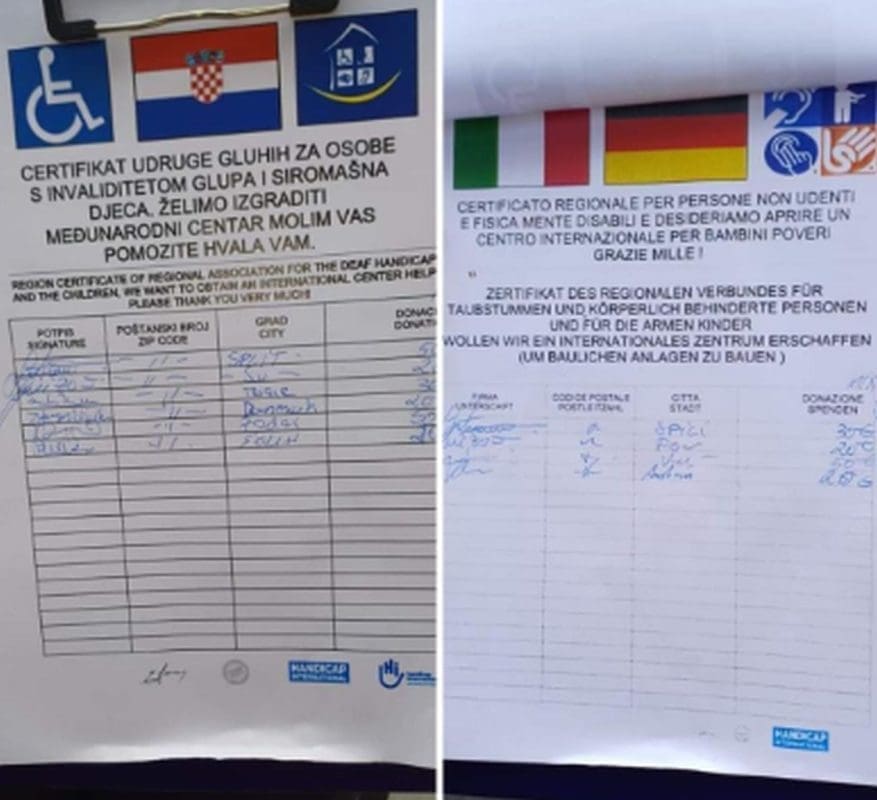 CERTIFIKAT UDRUGE GLUHIH ZA OSOBE
S INVALIDITETOM GLUPA I SIROMAŠNA
DJECA. ŽELIMO IZGRADITI
MEĐUNARODNI CENTAR MOLIM VAS
POMOZITE HVALA VAM.
REGION CERTIFICATE OF REGIONAL ASSOCIATION FOR THE DEAF HANDICAP
AND THE CHILDREN, WE WANT TO OBTAIN AN INTERNATIONAL CENTER HELP
PLEASE THANK YOU VERY MUCH!
POTPIS POŠTANSKI BROJ GRAD DONAC
SIGNATURE ZIP CODE CITY DONATI
SPLIT
HANDICAP
INTERNATIONAL
CERTIFICATO REGIONALE PER PERSONE NON UDENTI
E FISICA MENTE DISABILI E DESIDERIAMO APRIRE UN
CENTRO INTERNAZIONALE PER BAMBINI POVERI
GRAZIE MILLE !
ZERTIFIKAT DES REGIONALEN VERBUNDES FÜR
TAUBSTUMMEN UND KÖRPERLICH BEHINDERTE PERSONEN
UND FÜR DIE ARMEN KINDER
WOLLEN WIR EIN INTERNATIONALES ZENTRUM ERSCHAFFEN
(UM BAULICHEN ANLAGEN ZU BAUEN )
FIRMA CODICE POSTALE CITTA DONAZIONE
UNTERSCHAFT POSTLEITZAHL STADT SPENDEN
HANDICAP
INTERNATIONAL